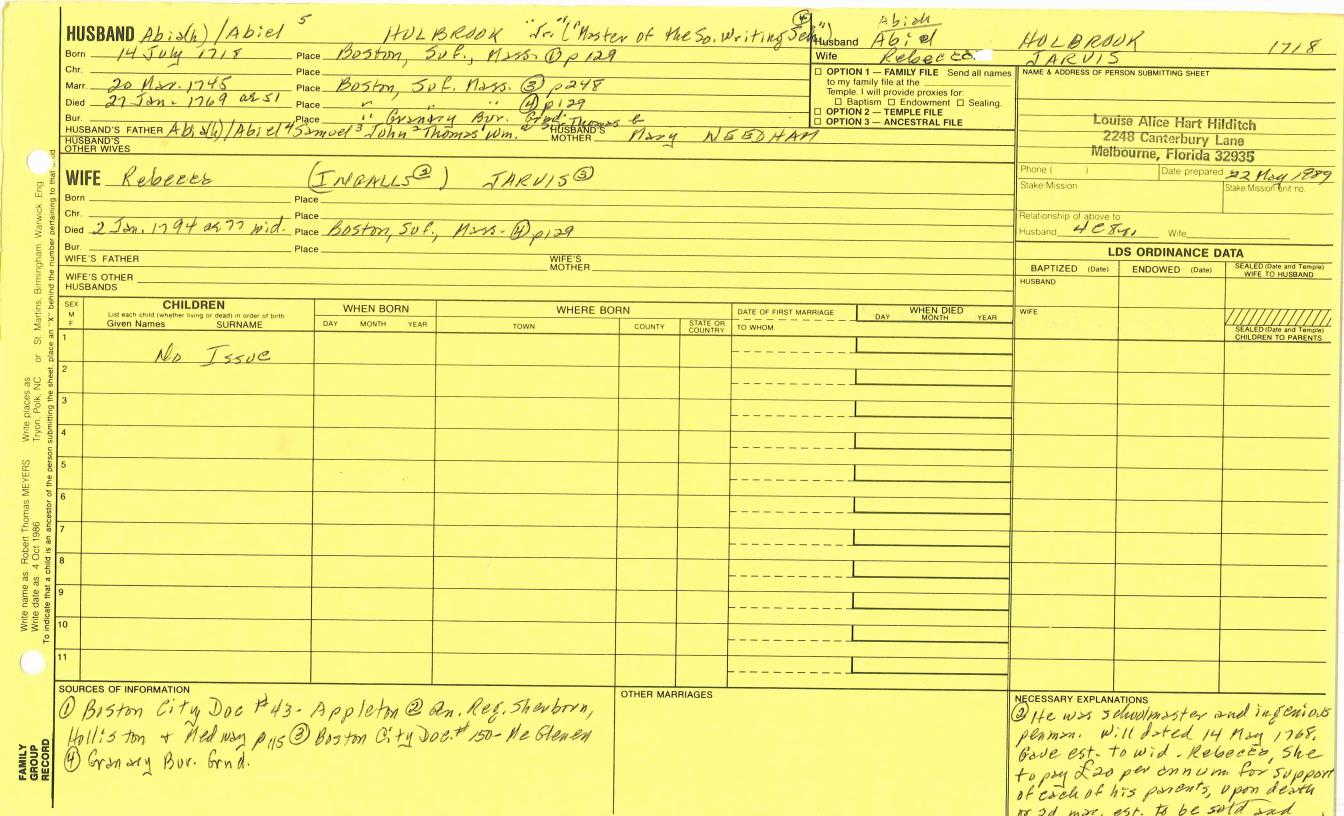 HUSBAND Abia(h)/Abiel 5 HOLBROOK "Jr." ("Master of the So. Writing Sch.") ④
Born 14 July 1718 Place Boston, Suf., Mass. ① p129
Chr. Place
Marr. 20 Mar. 1745 Place Boston, Suf. Mass. ③ p248
Died 27 Jan. 1769 ae 51 Place " " " ④ p129
Bur. Place " Granary Bur. Grnd.
HUSBAND'S FATHER Abia(h)/Abiel 4 Samuel 3 John 2 Thomas HUSBAND'S MOTHER Mary NEEDHAM
HUSBAND'S OTHER WIVES
Abiah
Husband Abiel HOLBROOK 1718
Wife Rebecca JARVIS
☐ OPTION 1 — FAMILY FILE Send all names
to my family file at the
Temple. I will provide proxies for:
☐ Baptism ☐ Endowment ☐ Sealing.
☐ OPTION 2 – TEMPLE FILE
☐ OPTION 3 – ANCESTRAL FILE
NAME & ADDRESS OF PERSON SUBMITTING SHEET
Louise Alice Hart Hilditch
2248 Canterbury Lane
Melbourne, Florida 32935
Phone ( ) Date prepared 22 May 1989
Stake Mission Stake Mission unit no.
Relationship of above to
Husband 4C8r. Wife
WIFE Rebecca (INGALLS ②) JARVIS ③
Born Place
Chr. Place
Died 2 Jan. 1794 ae 77 wid. Place Boston, Suf., Mass. ④ p129
Bur. Place
WIFE'S FATHER WIFE'S MOTHER
WIFE'S OTHER HUSBANDS
LDS ORDINANCE DATA
BAPTIZED (Date) ENDOWED (Date) SEALED (Date and Temple) WIFE TO HUSBAND
HUSBAND
WIFE
SEALED (Date and Temple) CHILDREN TO PARENTS
SEX M F
CHILDREN
List each child (whether living or dead) in order of birth
Given Names SURNAME
WHEN BORN
DAY MONTH YEAR
WHERE BORN
TOWN COUNTY STATE OR COUNTRY
DATE OF FIRST MARRIAGE
TO WHOM
WHEN DIED
DAY MONTH YEAR
1 No Issue
2
3
4
5
6
7
8
9
10
11
Write name as: Robert Thomas MEYERS Write places as Tryon, Polk, NC or St. Martins, Birmingham, Warwick, Eng.
Write date as: 4 Oct 1986
To indicate that a child is an ancestor of the person submitting the sheet, place an "X" behind the number pertaining to that
FAMILY GROUP RECORD
SOURCES OF INFORMATION
① Boston City Doc #43 - Appleton ② An. Reg. Sherborn,
Holliston & Medway p115 ③ Boston City Doc. # 150 - McGlenen
④ Granary Bur. Grnd.
OTHER MARRIAGES
NECESSARY EXPLANATIONS
② He was schoolmaster and ingenious
penman. Will dated 14 May 1768.
Gave est. to wid. Rebecca, She
to pay £20 per annum for support
of each of his parents, upon death
or 2d mar. est. to be sold and